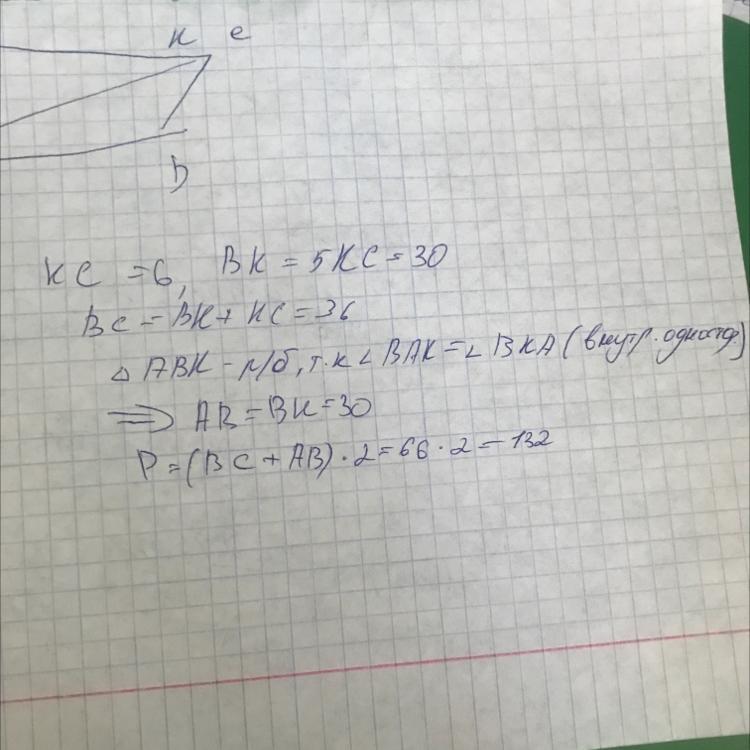 К С
D
КС = 6, ВК = 5КС = 30
ВС = ВК + КС = 36
△ АВК - р/б, т.к ∠ ВАК = ∠ ВКА (внутр. одностор.)
⇒ АВ = ВК = 30
Р = (ВС + АВ) · 2 = 66 · 2 = 132